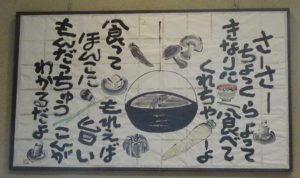 さーさー
ちょっくらよって
食べて
くれちゃーよ
食ってもれえば
ほんに旨い
もんだちゅうこんが
わかるだよ